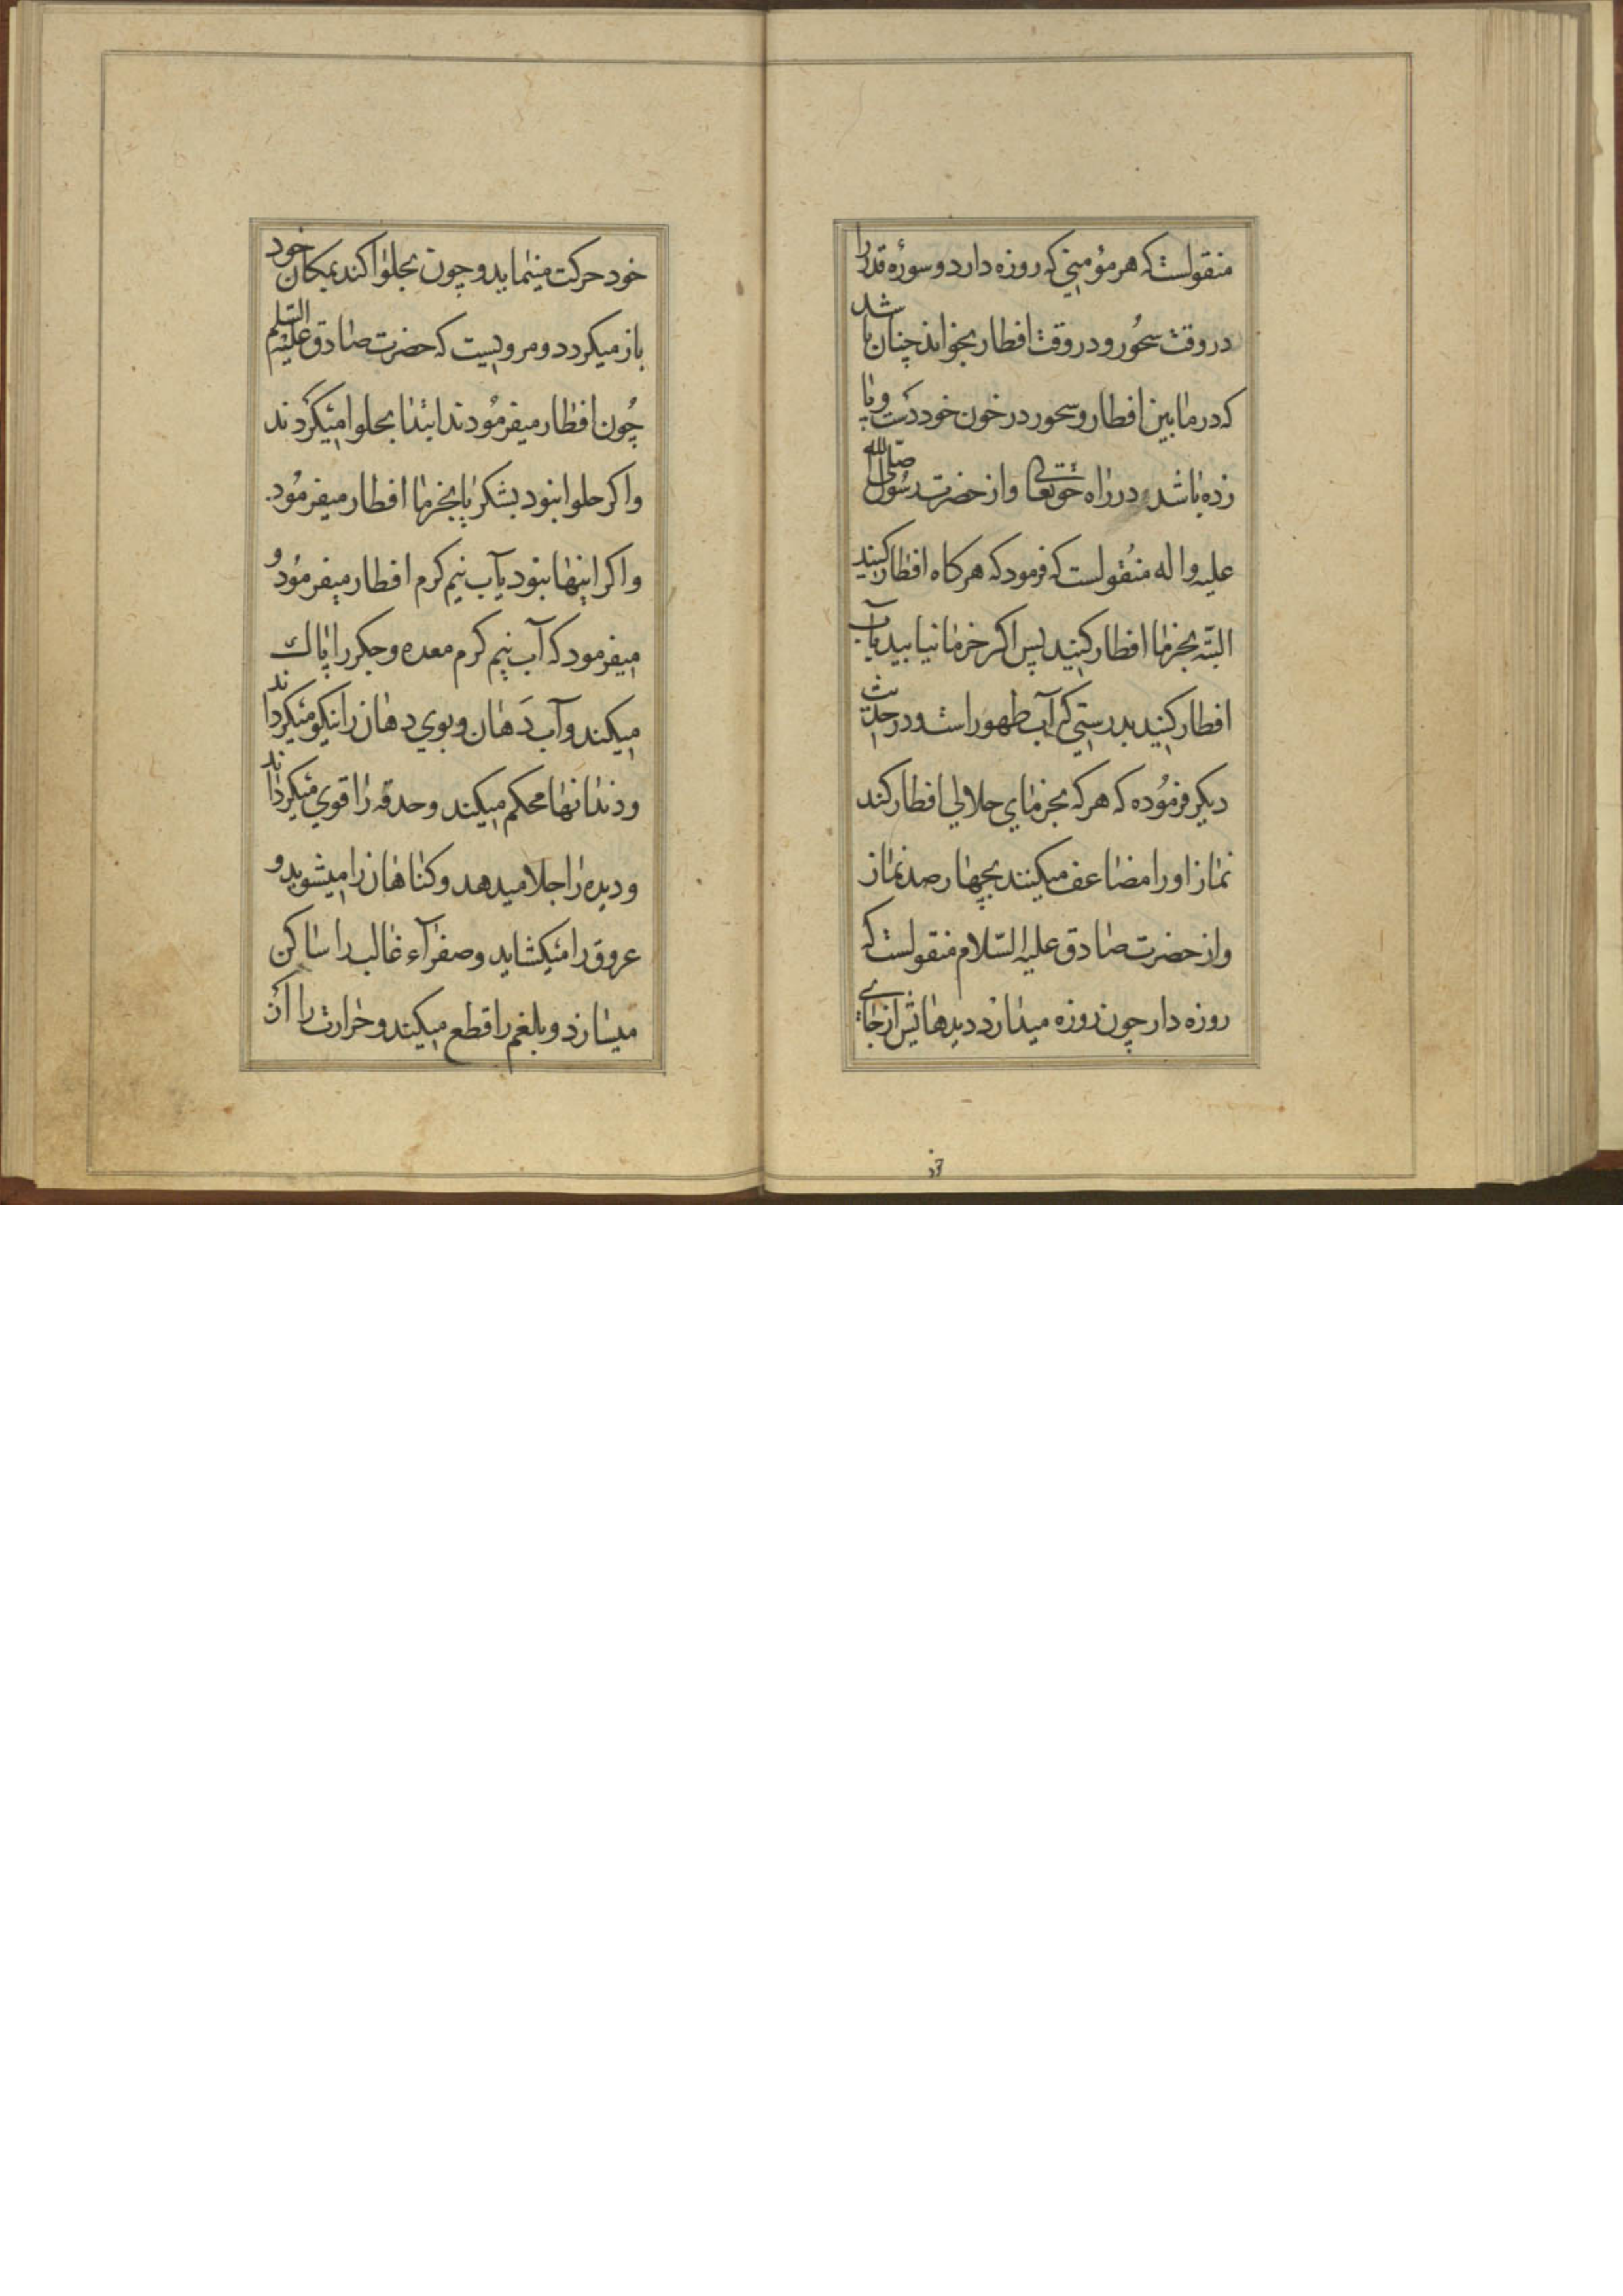 منقولست که هر مؤمنی که روزه دارد و سورهٔ قدر را
در وقت سحُور و در وقت افطار بخواند چنان باشد
که در مابین افطار و سحور در خون خود دست و پا
زده باشد در راه حقتعالی و از حضرت رسُول صلی الله
علیه و اله منقولست که فرمود که هرکاه افطار کنید
البتّه بخرما افطار کنید پس اکر خرما نیابید بآب
افطار کنید بدرستی که آب طهور است و در حدیث
دیکر فرمُوده که هر که بخرمای حلالی افطار کند
نماز او را مضاعف میکنند بچهار صد نماز
و از حضرت صادق علیه السّلام منقولست که
روزه دار چون روزه میدارد دیدهایش از جای
خود
خود حرکت مینماید و چون بحلوا کند بمکان خود
باز میکردد و مرویست که حضرت صادق علیه السّلم
چُون افطار میفرمُودند ابتدا بحلوا میکردند
و اکر حلوا نبود بشکر یا بخرما افطار میفرمُود
و اکر اینها نبود بآب نیم کرم افطار میفرمُود و
میفرمود که آب نیم کرم معده و جکر را پاک
میکند و آب دَهان و بوی دهان را نیکو میکرداند
و دندانها محکم میکند و حدقه را قوی میکرداند
و دیده را جلا میدهد و کناهان را میشوید و
عروق را میکشاید و صفرآء غالب را ساکن
میسازد و بلغم را قطع میکند و حرارت را از